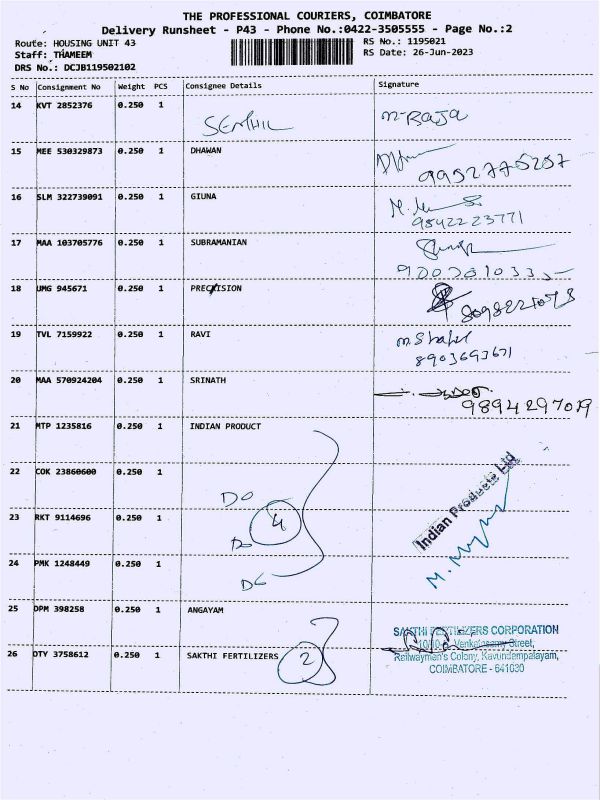 THE PROFESSIONAL COURIERS, COIMBATORE
Delivery Runsheet - P43 - Phone No.:0422-3505555 - Page No.:2
Route: HOUSING UNIT 43
Staff: THAMEEM
DRS No.: DCJB119502102
RS No.: 1195021
RS Date: 26-Jun-2023
S No Consignment No Weight PCS Consignee Details Signature
14 KVT 2852376 0.250 1 SENTHIL M-RAJA
15 MEE 530329873 0.250 1 DHAWAN
9952775257
16 SLM 322739091 0.250 1 GIUNA
9542223771
17 MAA 103705776 0.250 1 SUBRAMANIAN
18 UMG 945671 0.250 1 PRECISION
19 TVL 7159922 0.250 1 RAVI
8903693671
20 MAA 570924204 0.250 1 SRINATH
9894297019
21 MTP 1235816 0.250 1 INDIAN PRODUCT
22 COK 23860600 0.250 1
DO
23 RKT 9114696 0.250 1 4
DO
Indian Products Ltd
24 PMK 1248449 0.250 1
DO
25 DPM 398258 0.250 1 ANGAYAM
26 DTY 3758612 0.250 1 SAKTHI FERTILIZERS 2
SAKTHI FERTILIZERS CORPORATION
Venkatasamy Street,
Railwaymen's Colony, Kavundampalayam,
COIMBATORE - 641030